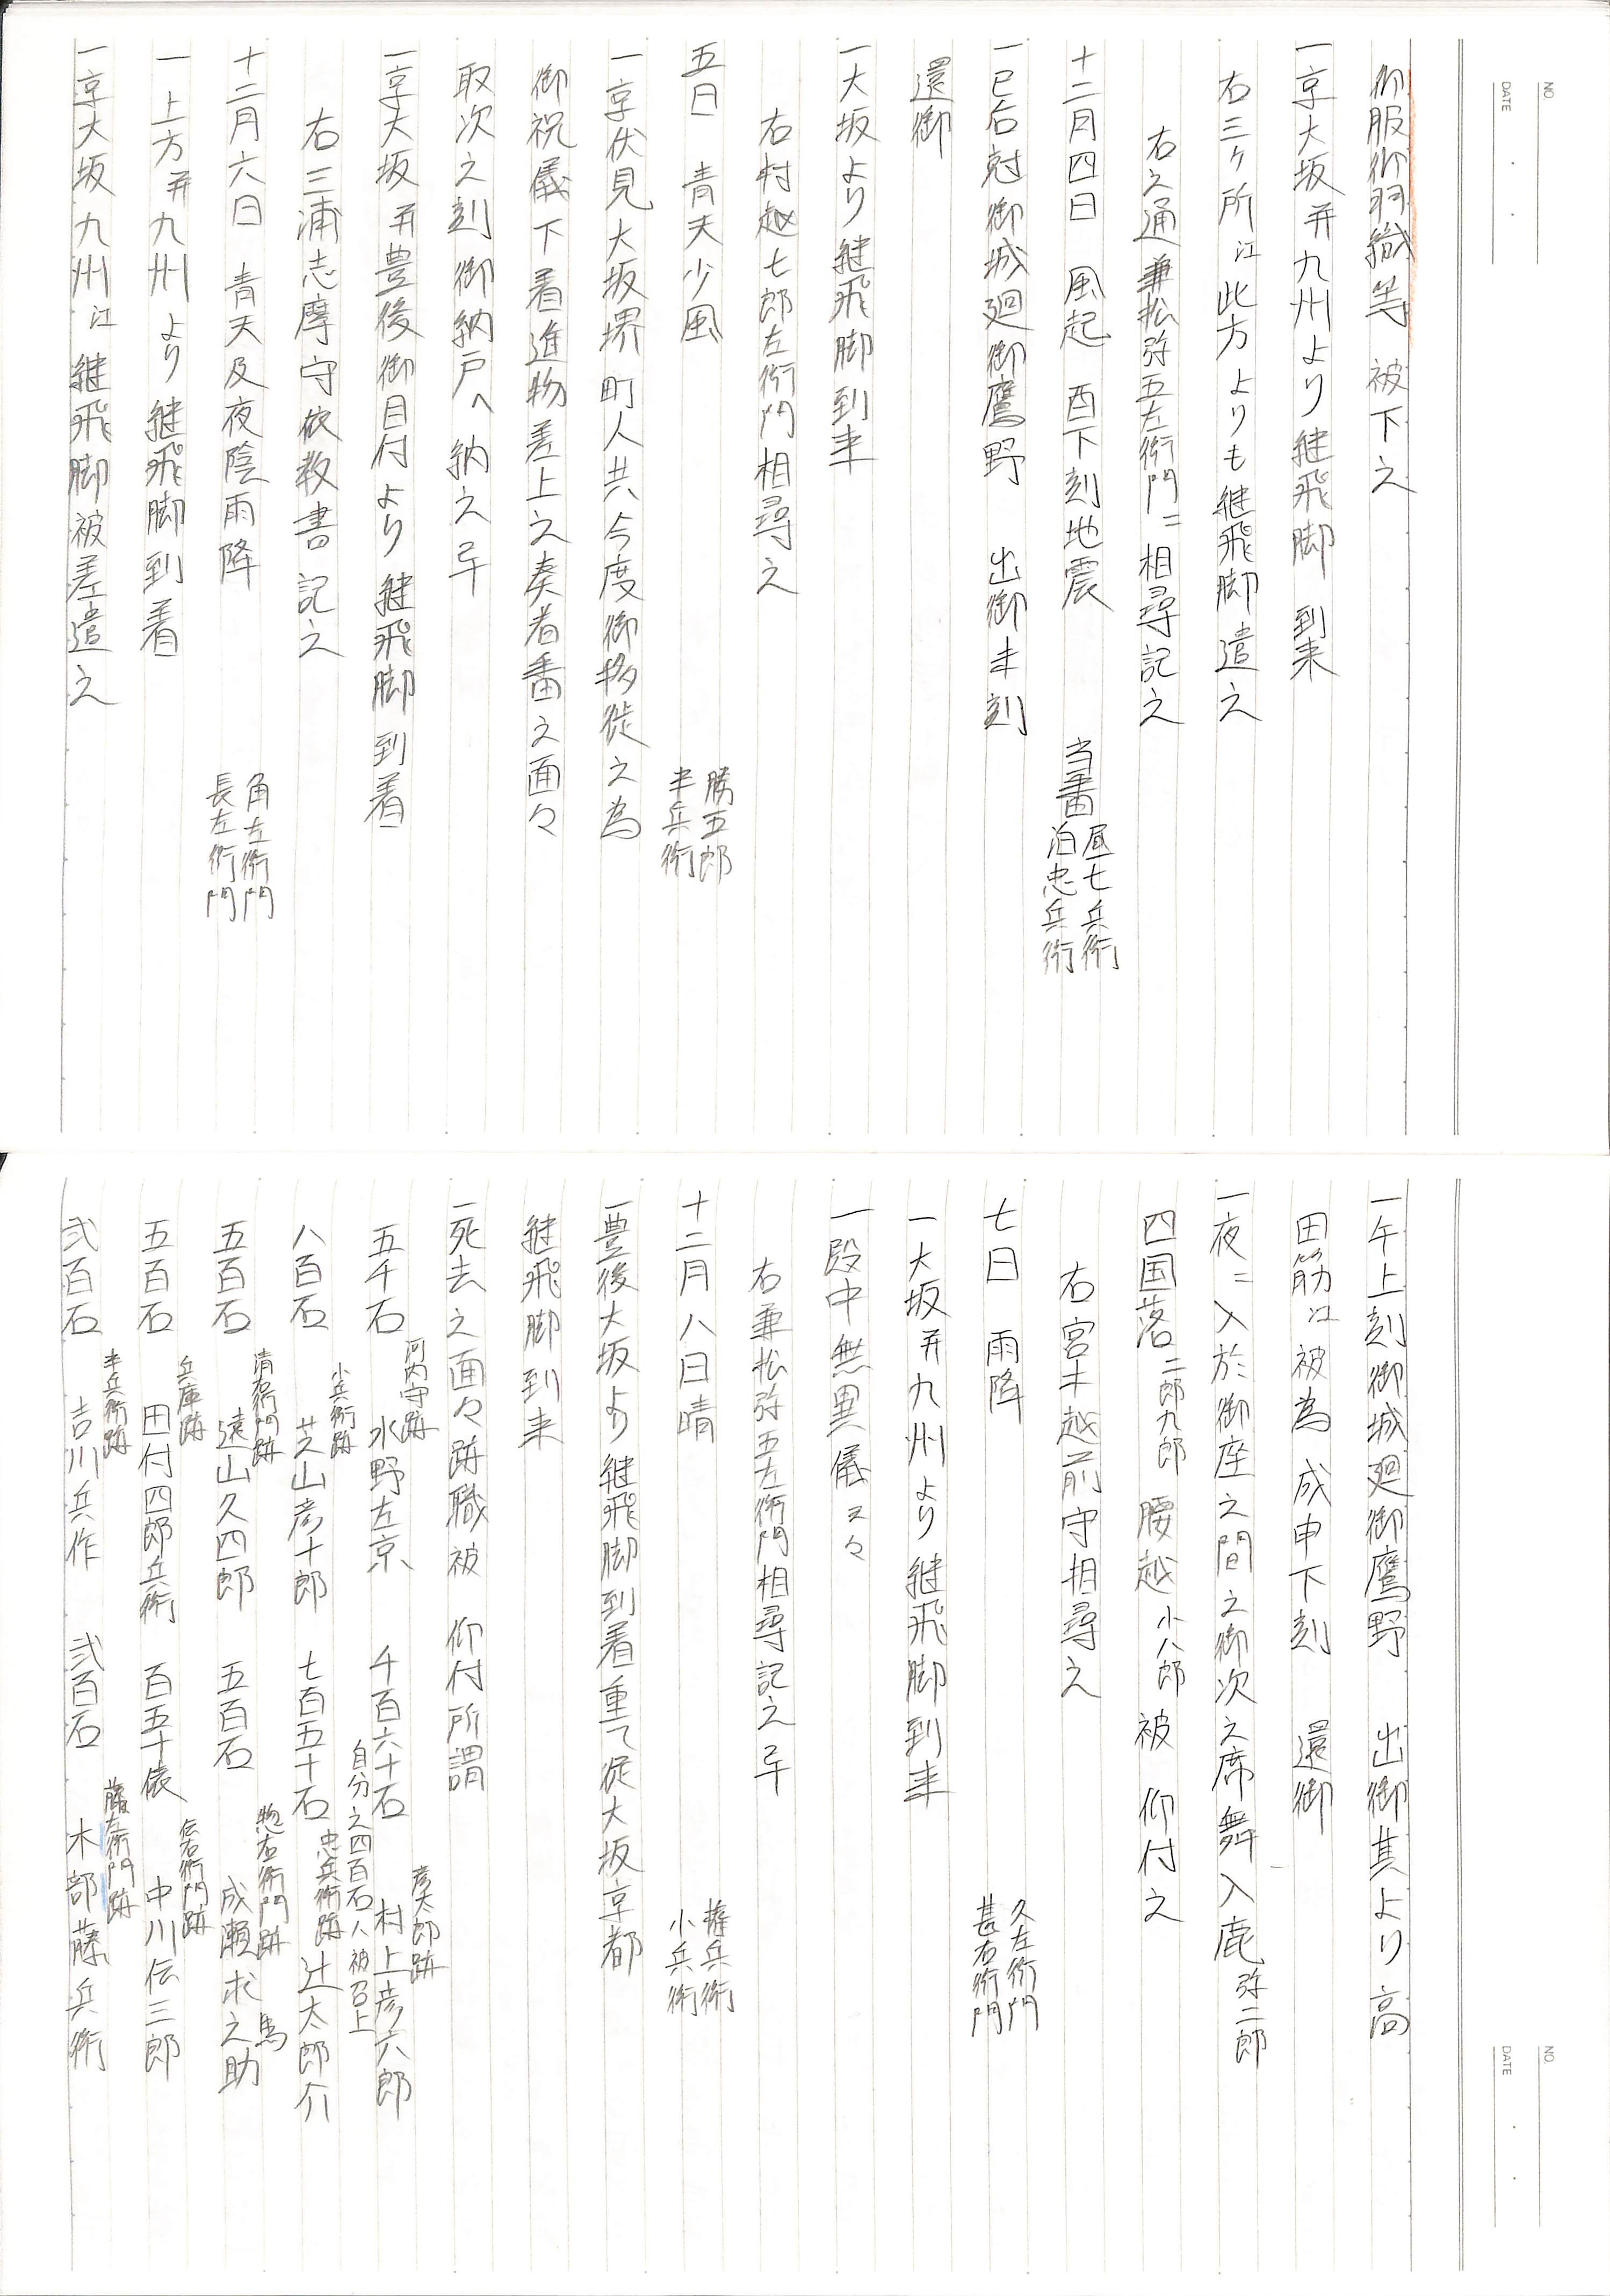 NO.
DATE
御服御羽織等 被下之
一京大坂并九州より継飛脚 到来
右三ヶ所江此方よりも継飛脚遣之
右之通兼松弥五左衛門ニ相尋記之
十二月四日 風起 酉下刻地震 当番 昼七兵衛 泊忠兵衛
一巳后尅御城廻御鷹野 出御未刻
還御
一大坂より継飛脚到来
右村越七郎左衛門相尋之
五日 青天少風 勝五郎 半兵衛
一京伏見大坂堺町人共今度御移徙之為
御祝儀下着進物差上之奏者番之面々
取次之刻御納戸へ納之畢
一京大坂并豊後御目付より継飛脚到着
右三浦志摩守依教書記之
十二月六日 青天及夜陰雨降 角左衛門 長左衛門
一上方并九州より継飛脚到着
一京大坂九州江継飛脚被差遣之
NO.
DATE
一午上刻御城廻御鷹野 出御其より高
田筋江被為 成申下刻 還御
一夜ニ入於御座之間之御次之席舞入鹿 弥二郎
四国落 二郎九郎 腰越 小八郎 被 仰付之
右宮木越前守相尋之
七日 雨降 久左衛門 甚右衛門
一大坂并九州より継飛脚到来
一殿中無異儀云々
右兼松弥五左衛門相尋記之畢
十二月八日晴 権兵衛 小兵衛
一豊後大坂より継飛脚到着重て従大坂京都
継飛脚到来
一死去之面々跡職被 仰付所謂
五千石 河内守跡 水野左京 千百六十石 彦太郎跡 村上彦六郎
自分之四百石ハ被召上
八百石 小兵衛跡 芝山彦十郎 七百五十石 忠兵衛跡 辻太郎介
五百石 清右衛門跡 遠山久四郎 五百石 惣右衛門跡 成瀬求之助 馬
五百石 兵庫跡 田付四郎兵衛 百五十俵 伝右衛門跡 中川伝三郎
弐百石 半兵衛跡 吉川兵作 弐百石 藤左衛門跡 木部藤兵衛